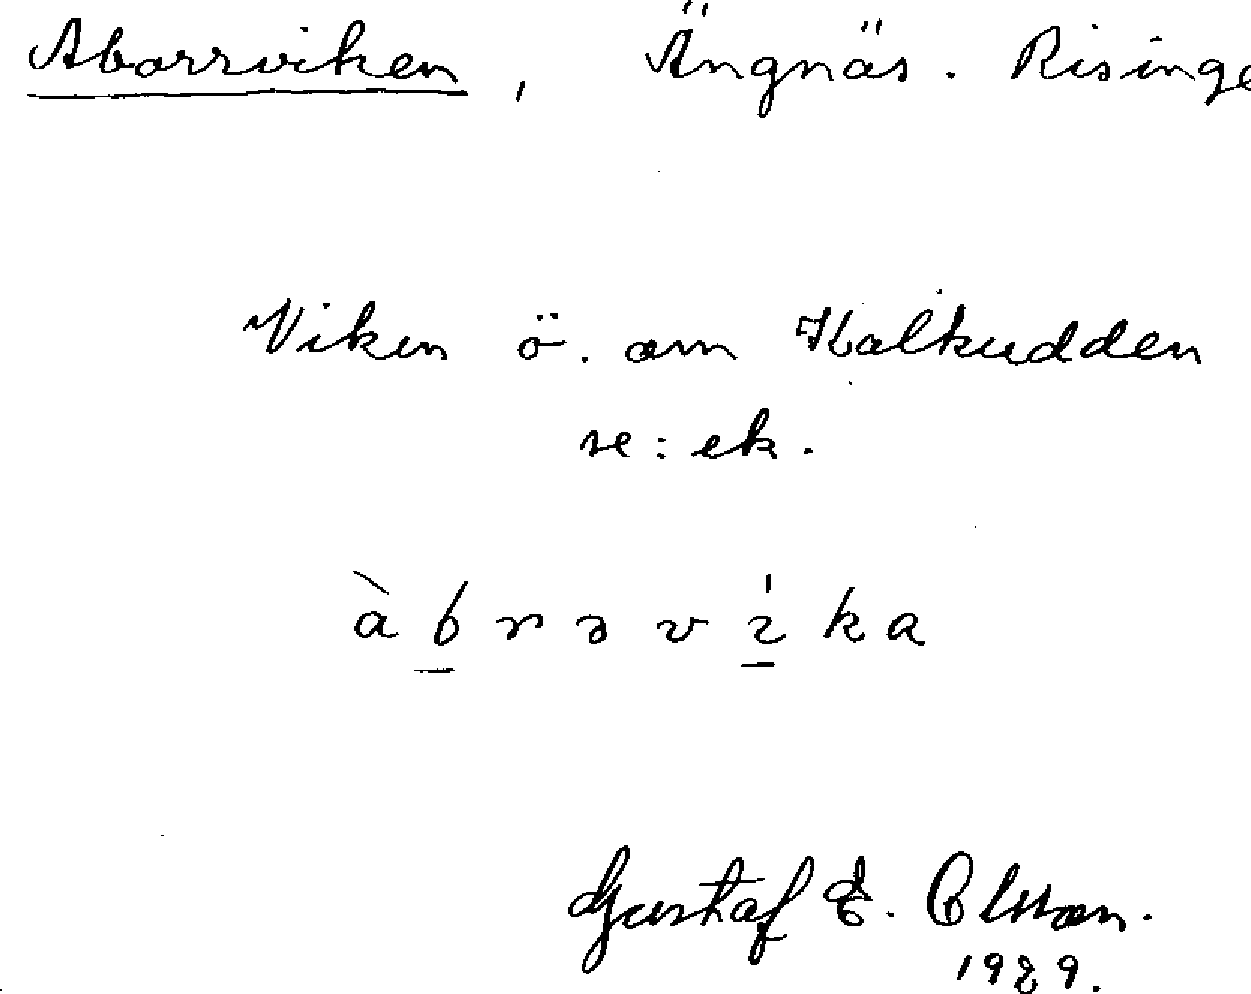 Aborrviken, Ängnäs. Risinge
Viken ö. om Kalkudden
se: ek.
àbrəvika
Gustaf E. Olsson.
1929.